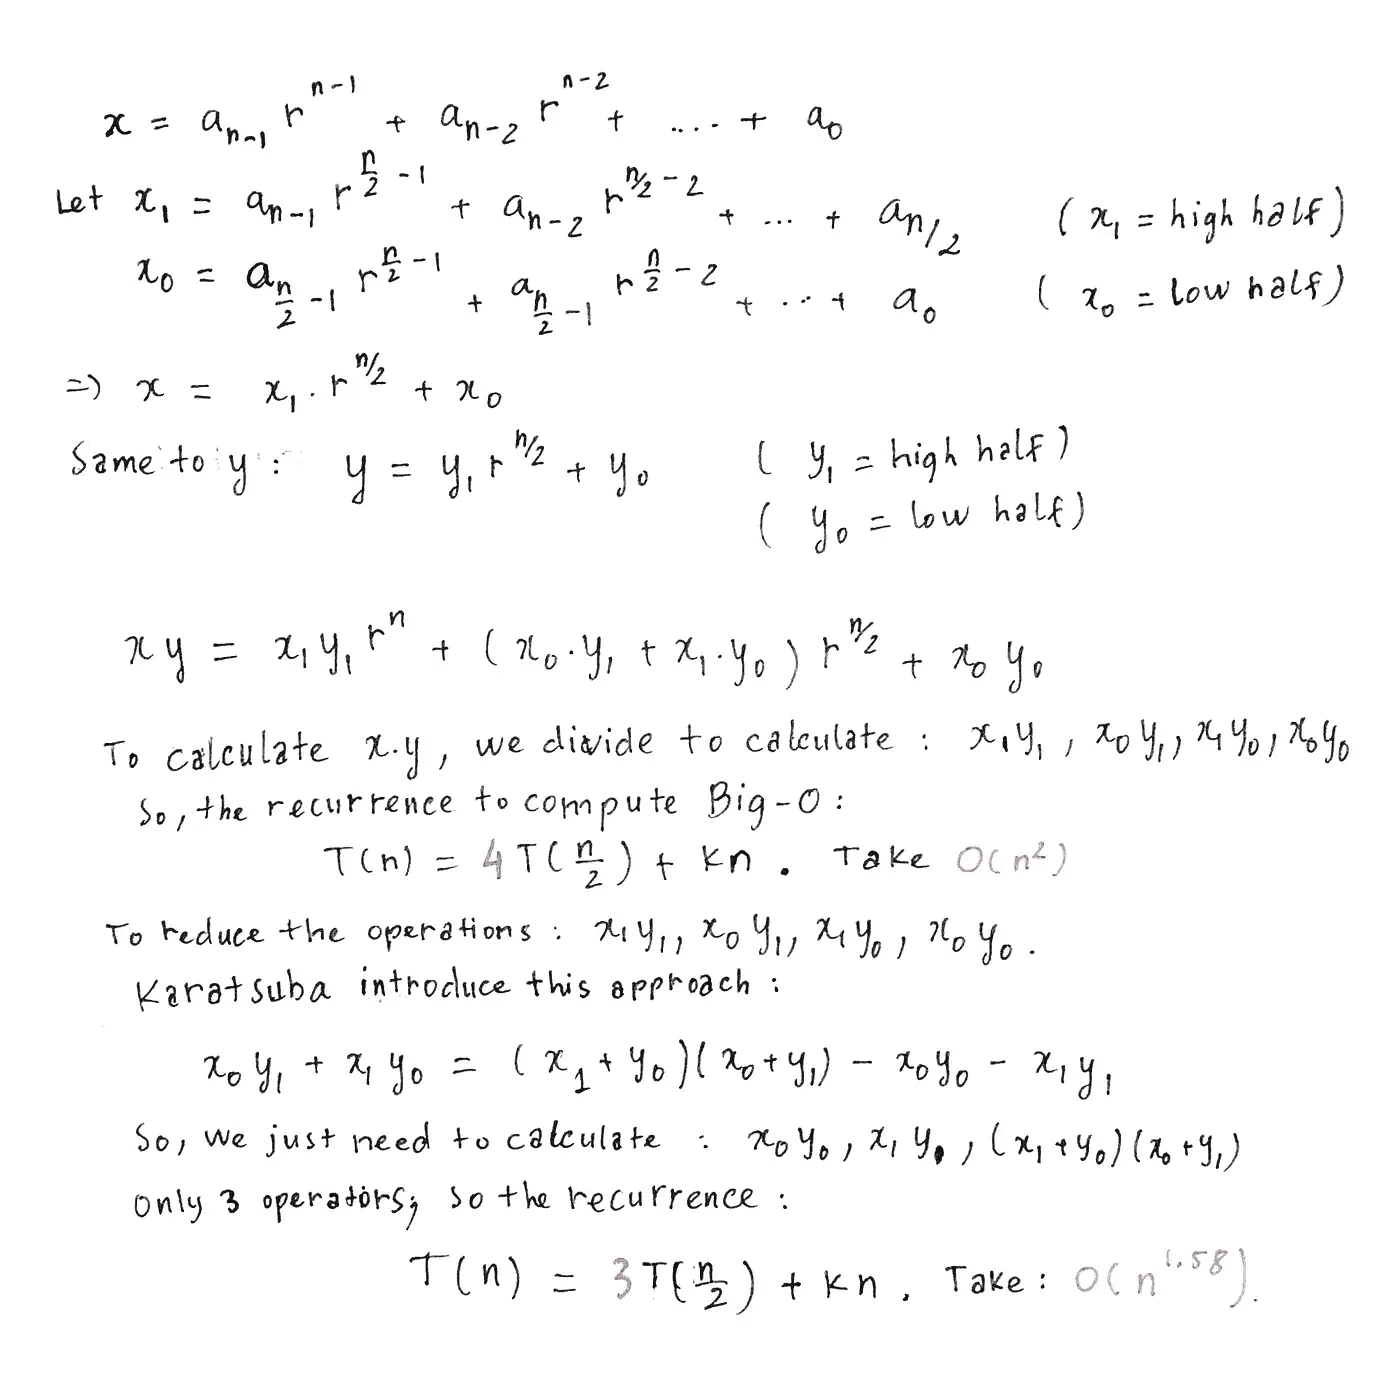 x = a_{n-1} r^{n-1} + a_{n-2} r^{n-2} + .... + a_0
Let x_1 = a_{n-1} r^{n/2 - 1} + a_{n-2} r^{n/2 - 2} + ... + a_{n/2} ( x_1 = high half )
x_0 = a_{n/2 - 1} r^{n/2 - 1} + a_{n/2 - 1} r^{n/2 - 2} + ... + a_0 ( x_0 = low half )
=> x = x_1 . r^{n/2} + x_0
Same to y : y = y_1 r^{n/2} + y_0 ( y_1 = high half )
( y_0 = low half )
x y = x_1 y_1 r^n + ( x_0 . y_1 + x_1 . y_0 ) r^{n/2} + x_0 y_0
To calculate x.y , we divide to calculate : x_1 y_1 , x_0 y_1 , x_1 y_0 , x_0 y_0
So , the recurrence to compute Big-O :
T(n) = 4 T( n/2 ) + kn . Take O( n^2 )
To reduce the operations : x_1 y_1 , x_0 y_1 , x_1 y_0 , x_0 y_0 .
Karatsuba introduce this approach :
x_0 y_1 + x_1 y_0 = ( x_1 + y_0 )( x_0 + y_1 ) - x_0 y_0 - x_1 y_1
So, we just need to calculate : x_0 y_0 , x_1 y_1 , ( x_1 + y_0 ) ( x_0 + y_1 )
only 3 operators; so the recurrence :
T(n) = 3 T( n/2 ) + kn . Take : O( n^{1.58} ) .